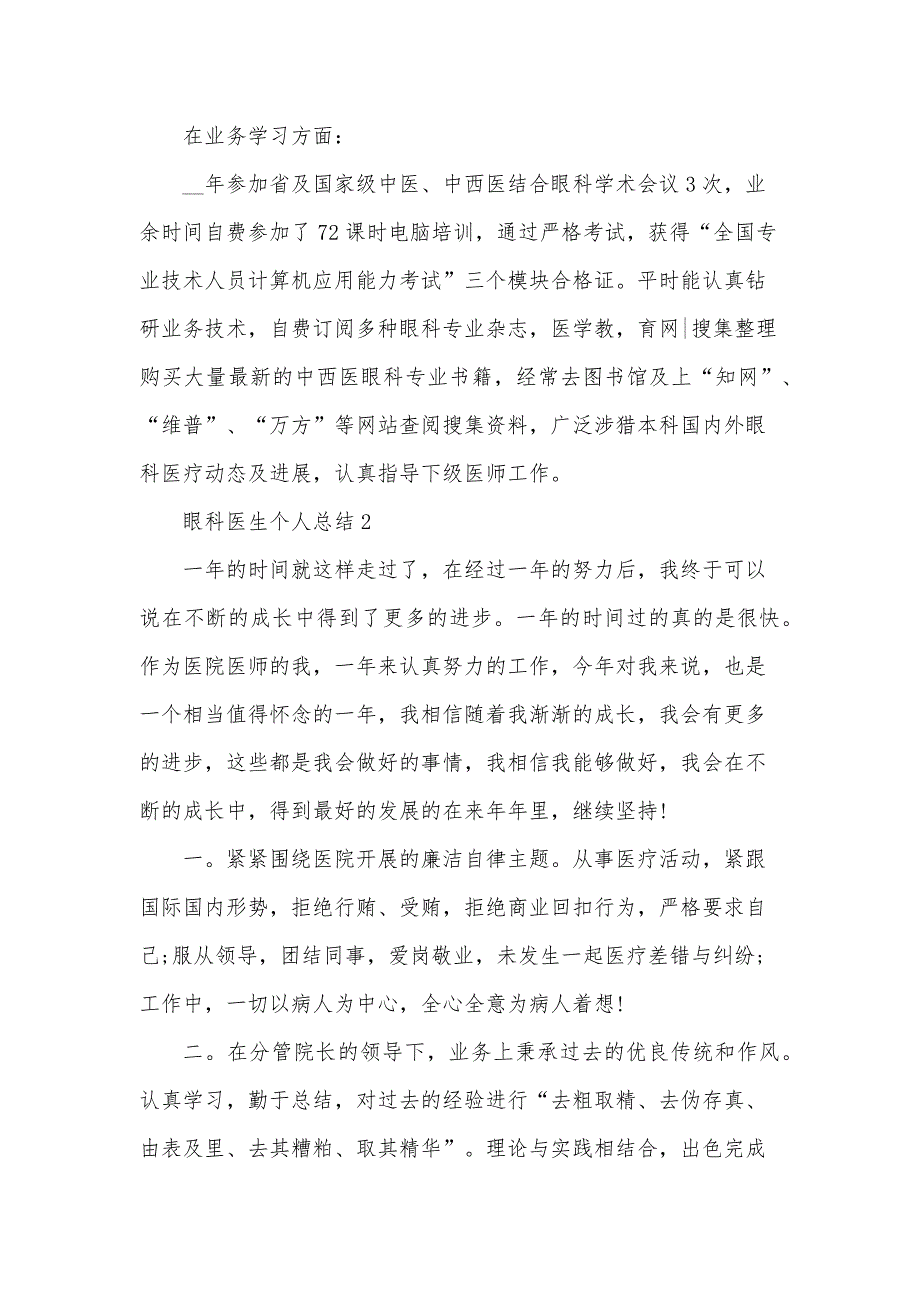 在业务学习方面：
__年参加省及国家级中医、中西医结合眼科学术会议3次，业
余时间自费参加了72课时电脑培训，通过严格考试，获得“全国专
业技术人员计算机应用能力考试”三个模块合格证。平时能认真钻
研业务技术，自费订阅多种眼科专业杂志，医学教，育网|搜集整理
购买大量最新的中西医眼科专业书籍，经常去图书馆及上“知网”、
“维普”、“万方”等网站查阅搜集资料，广泛涉猎本科国内外眼
科医疗动态及进展，认真指导下级医师工作。
眼科医生个人总结2
一年的时间就这样走过了，在经过一年的努力后，我终于可以
说在不断的成长中得到了更多的进步。一年的时间过的真的是很快。
作为医院医师的我，一年来认真努力的工作，今年对我来说，也是
一个相当值得怀念的一年，我相信随着我渐渐的成长，我会有更多
的进步，这些都是我会做好的事情，我相信我能够做好，我会在不
断的成长中，得到最好的发展的在来年年里，继续坚持!
一。紧紧围绕医院开展的廉洁自律主题。从事医疗活动，紧跟
国际国内形势，拒绝行贿、受贿，拒绝商业回扣行为，严格要求自
己;服从领导，团结同事，爱岗敬业，未发生一起医疗差错与纠纷;
工作中，一切以病人为中心，全心全意为病人着想!
二。在分管院长的领导下，业务上秉承过去的优良传统和作风。
认真学习，勤于总结，对过去的经验进行“去粗取精、去伪存真、
由表及里、去其糟粕、取其精华”。理论与实践相结合，出色完成